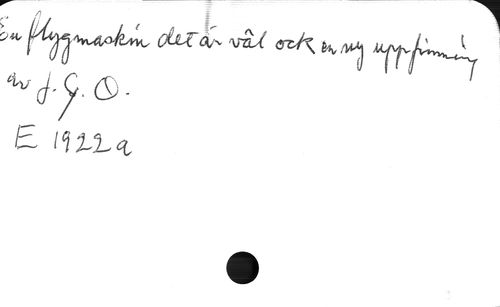 En flygmaskin det är väl ock en ny uppfinning
av J. G. O.
E 1922 a